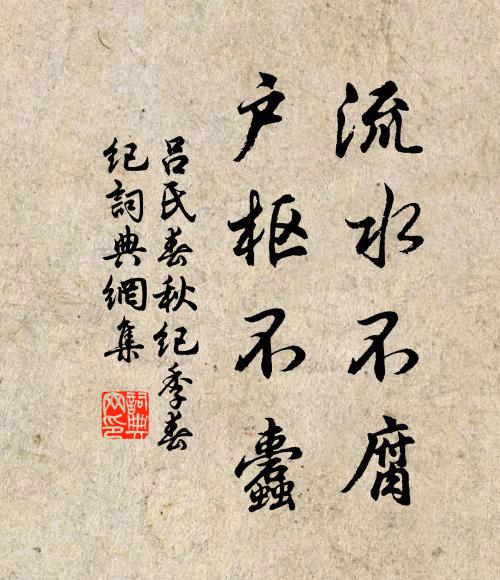 流水不腐
户枢不蠹
吕氏春秋纪季春
纪詞典網集
詞典
网印